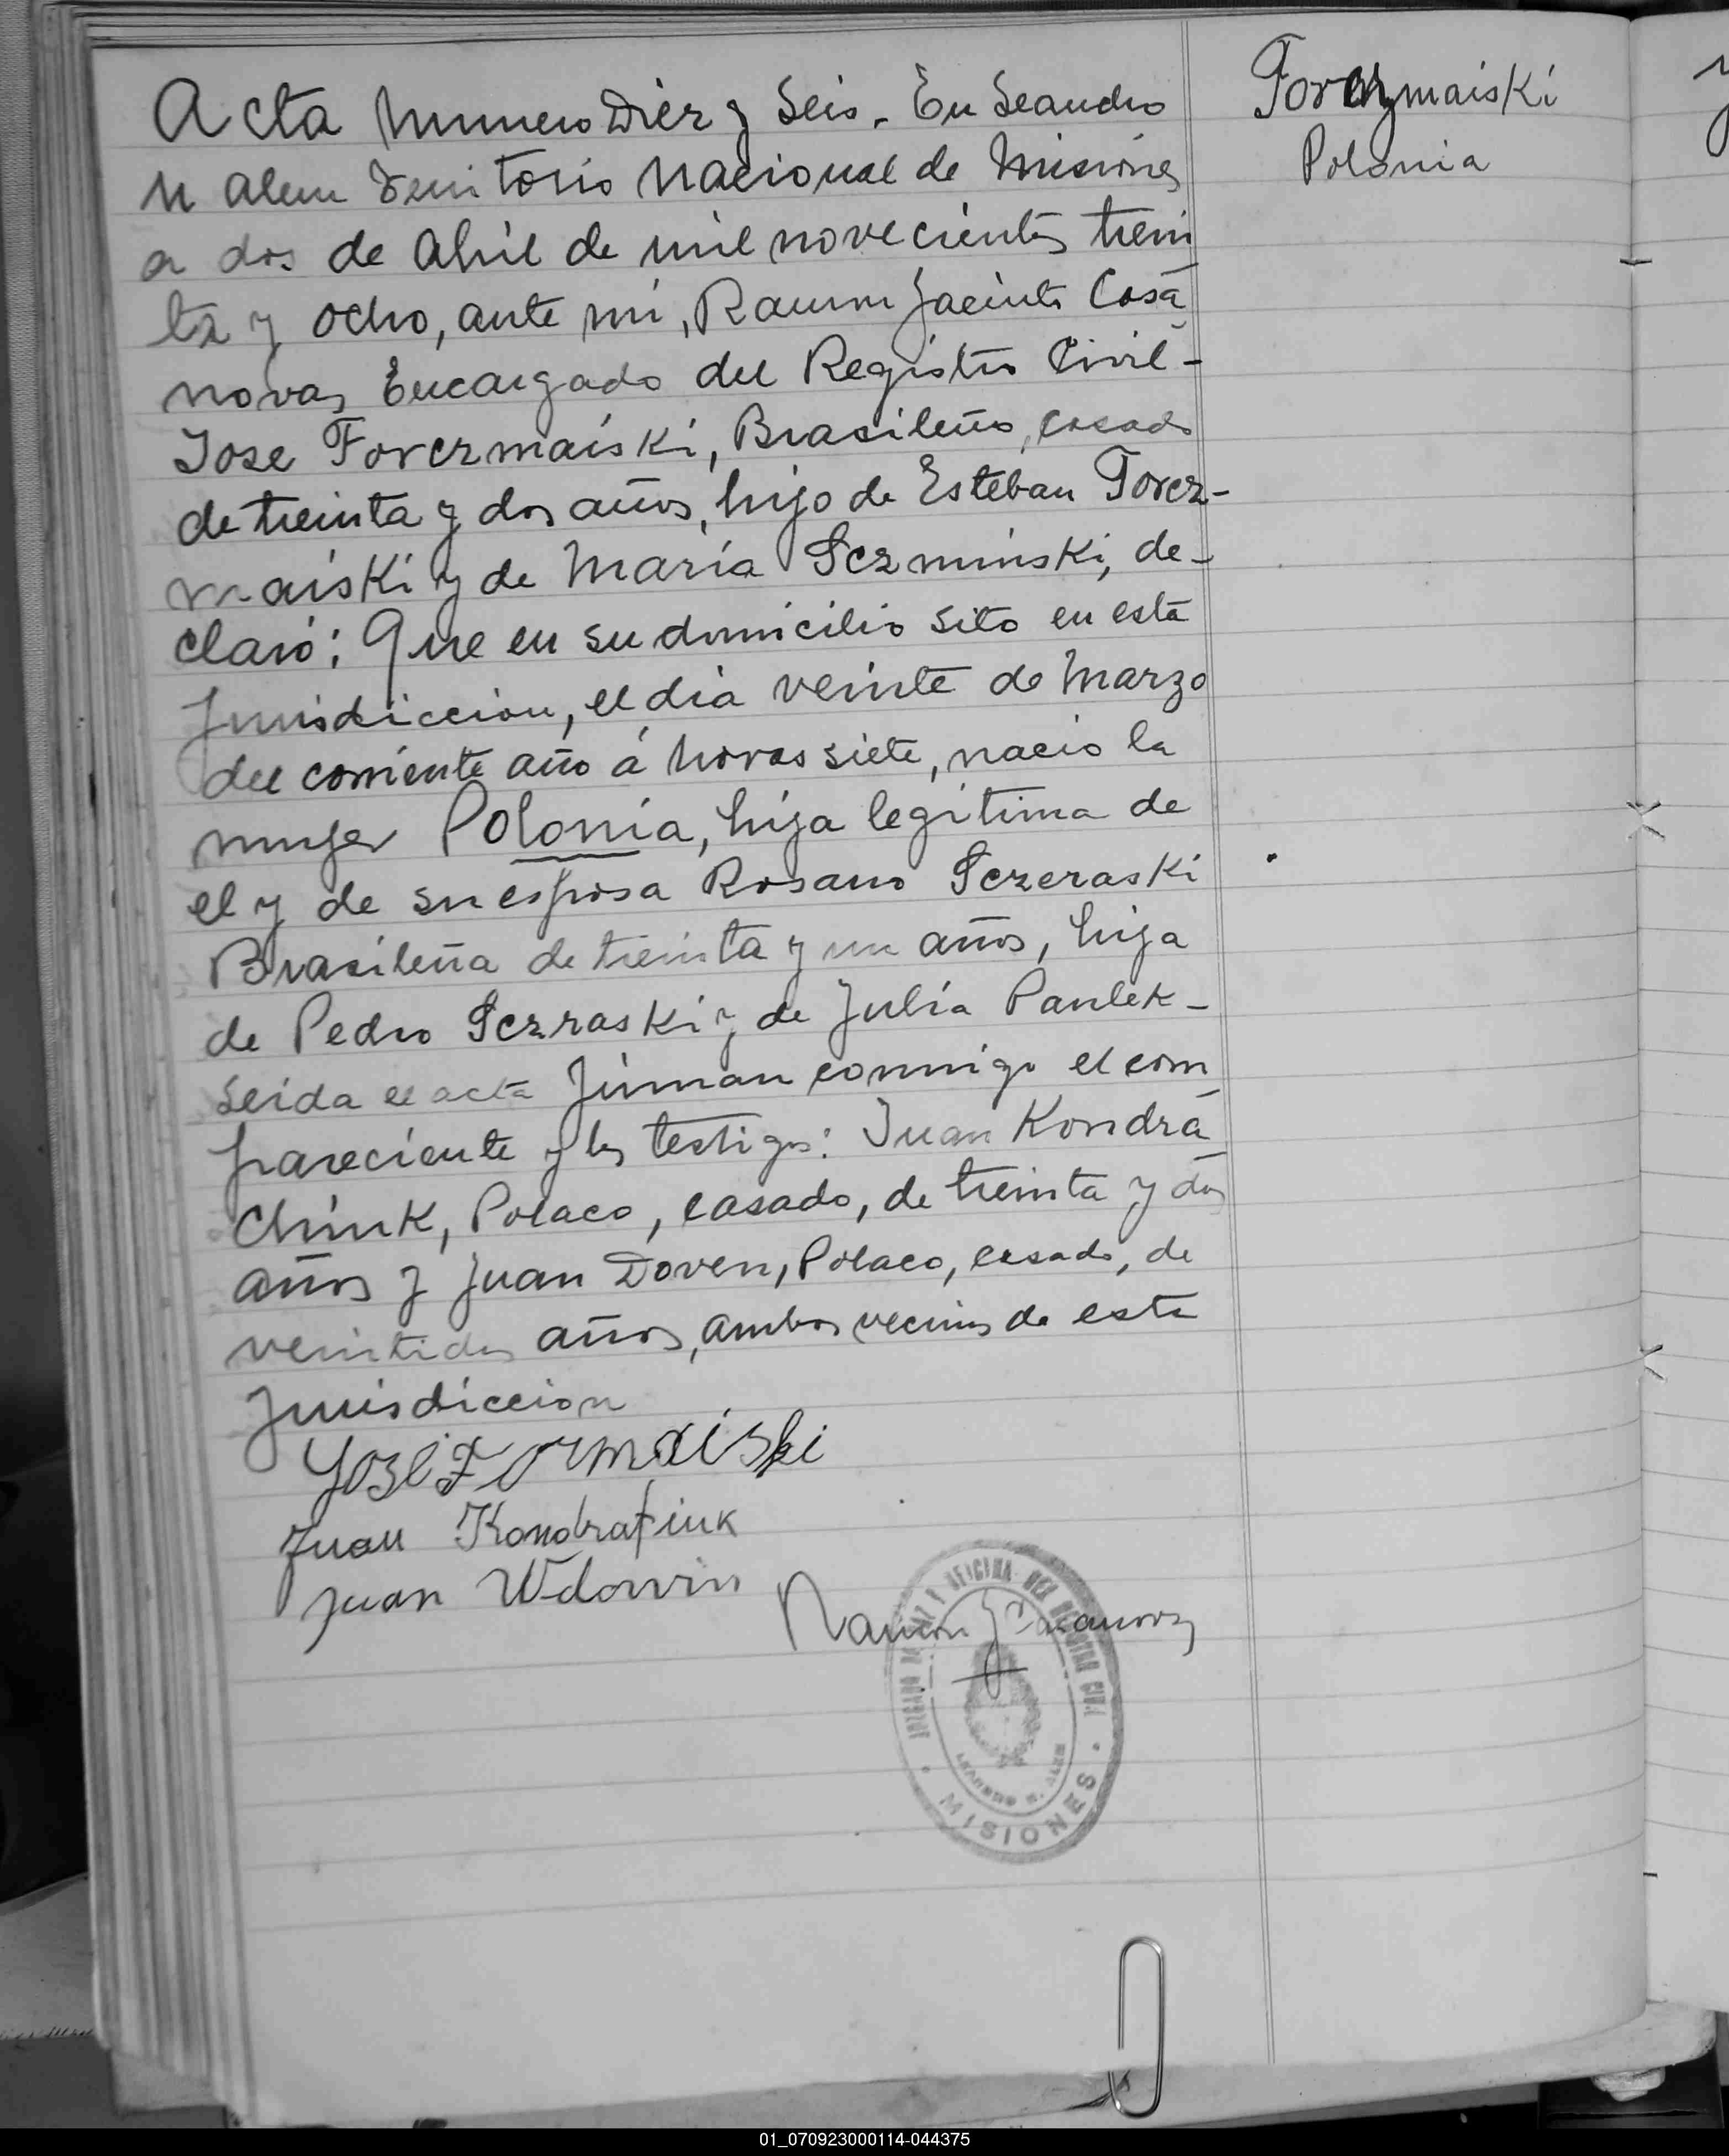 Acta Numero Diez y Seis. En Leandro
N Alem Territorio Nacional de Misiones
a dos de Abril de mil novecientos trein
ta y ocho, ante mí, Ramon Jacinto Casa
novas, Encargado del Registro Civil-
Jose Forczmaiski, Brasileño, casado
de treinta y dos años, hijo de Esteban Forcz-
maiski y de Maria Sczminski, de-
claró: Que en su domicilio sito en esta
Jurisdiccion, el dia veinte de Marzo
del corriente año á horas siete, nacio la
mujer Polonia, hija legitima de
el y de su esposa Rosario Sczeraski
Brasileña de treinta y un años, hija
de Pedro Sczraski y de Julia Paulek-
Leida el acta firman conmigo el com
pareciente y los testigos: Juan Kondra
Chink, Polaco, casado, de treinta y dos
años y Juan Doven, Polaco, casado, de
veintidos años, ambos vecinos de esta
Jurisdiccion
Jose Formaiski
Juan Kondratiuk
Juan Wdowin
Ramon J Casanovas
JUZGADO DE PAZ Y OFICINA DEL REGISTRO CIVIL
LEANDRO N. ALEM
MISIONES
Forczmaiski
Polonia
01_070923000114-044375